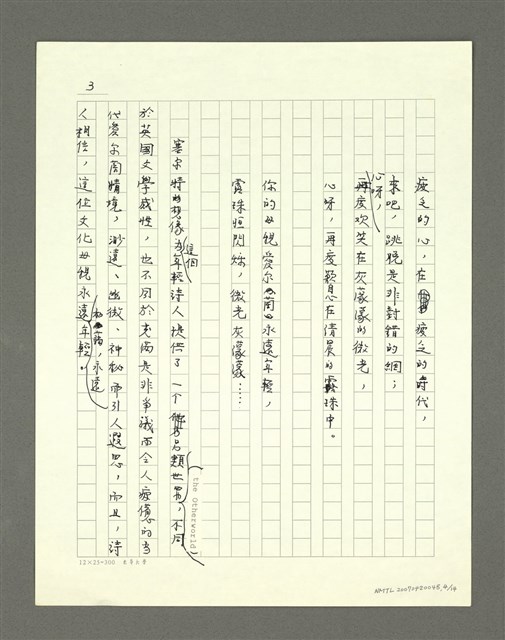 3
疲乏的心，在疲乏的時代，
來吧，跳脫是非對錯的網；
心呀，再度欢笑在灰濛濛的微光，
心呀，再度嘆息在清晨的露珠中。
你的母親愛尔蘭永遠年輕，
露珠恒閃爍，微光灰濛濛……
塞尔特的想像為這個年輕詩人提供了一个另類世界（the Otherworld），不同
於英國文學感性，也不同於充滿是非爭議而令人疲憊的当
代愛尔蘭情境，渺遠、幽微、神秘而引人遐思，而且，詩
人相信，這位文化母親永遠，永遠年輕。
12×25=300 東華大學
NMTL 20070920045, 4/14